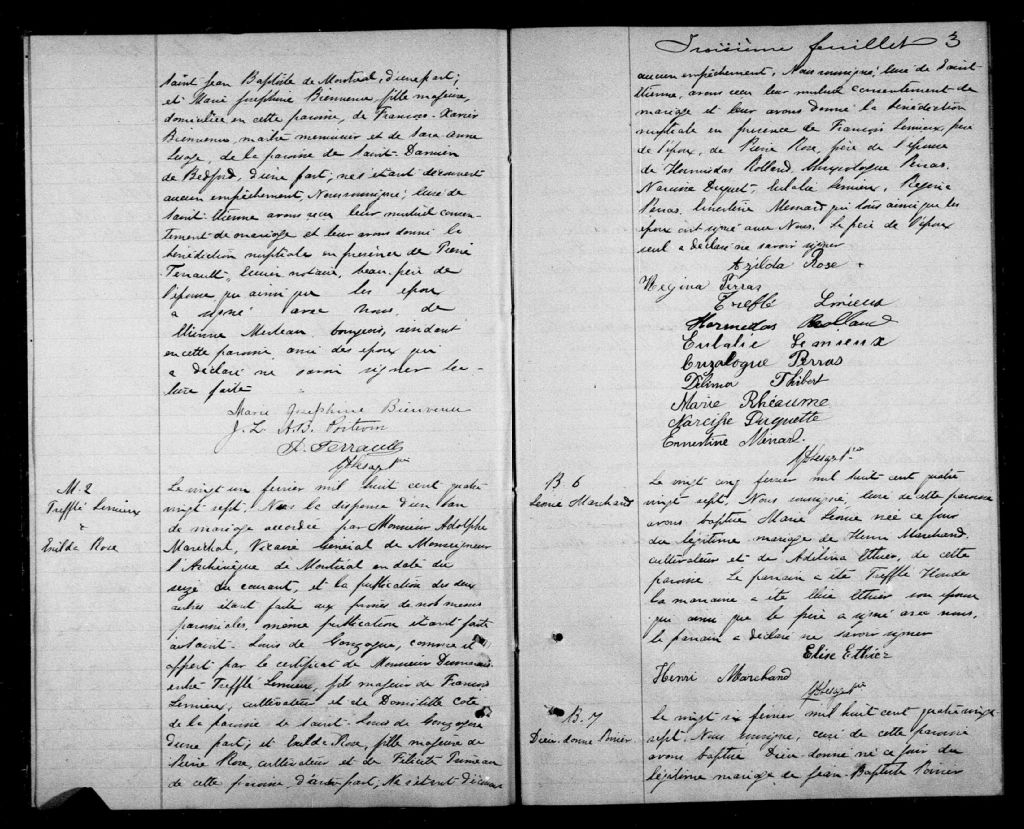 Saint Jean Baptiste de Montréal, d'une part;
et Marie Josephine Bienvenue, fille majeure,
domiciliée en cette paroisse, de François-Xavier
Bienvenue, maître menuisier et de Sara Anne
Lesage, de la paroisse de Saint-Damien
de Bedford, d'une part; ne s'étant découvert
aucun empêchement, Nous soussigné, curé de
Saint-Etienne avons reçu leur mutuel consen-
tement de mariage et leur avons donné la
bénédiction nuptiale en présence de Pierre
Terrault, Ecuier notaire, beau-père de
l'épouse qui ainsi que les époux
a signé avec nous, de
Etienne bourgeois, résident
en cette paroisse, ami des époux qui
a déclaré ne savoir signer lec-
ture faite
Marie Josephine Bienvenu
J. L. A.B. Poitevin
P. Terrault
Ptre
M. 2
Trefflé Lemieux
&
Exilda Rose
Le vingt un fevrier mil huit cent quatre
vingt sept. Vu la dispense d'un ban
de mariage accordée par Monsieur Adolphe
Maréchal, Vicaire Général de Monseigneur
l'Archevêque de Montréal en date du
seize du courant, et la publication des deux
autres étant faite aux prônes de nos messes
paroissiales, même publication étant faite
à Saint-Louis de Gonzague, comme il
appert par le certificat de Monsieur
entre Trefflé Lemieux, fils majeur de François
Lemieux, cultivateur et de Domitilde Coté
de la paroisse de Saint-Louis de Gonzague
d'une part; et Exilda Rose, fille majeure de
Pierre Rose, cultivateur et de Félicité Primeau
de cette paroisse d'autre part, Ne s'étant découvert
Troisième feuillet 3
aucun empêchement, Nous soussigné, curé de Saint-
Etienne, avons reçu leur mutuel consentement de
mariage et leur avons donné la bénédiction
nuptiale en présence de François Lemieux, père
de l'époux, de Pierre Rose, père de l'épouse
de Hormisdas Rolland, Chrysologue Perras,
Narcisse Duquet, Eulalie Lemieux, Regina
Perras, Ernestine Menard qui tous ainsi que les
époux ont signé avec Nous. Le père de l'époux
seul a déclaré ne savoir signer
Azilda Rose
Regina Perras
Trefflé Lmieux
Hormidas Rolland
Eulalie Lemieux
Crizologue Perras
Délima Thibert
Marie Rhéaume
Narcisse Duquette
Ernestine Menard.
Ptre
B 6
Leonie Marchand
Le vingt cinq fevrier mil huit cent quatre
vingt sept. Nous soussigné, curé de cette paroisse
avons baptisé Marie Léonie née ce jour
du légitime mariage de Henri Marchand,
cultivateur et de Adelina Ethier, de cette
paroisse. Le parrain a été Trefflé Houde
la marraine a été Elise Ethier son épouse
qui ainsi que le père a signé avec nous,
le parrain a déclaré ne savoir signer
Elise Ethier
Henri Marchand
Ptre
B. 7
Dieu-donné Poirier
Le vingt six fevrier mil huit cent quatre vingt
sept. Nous soussigné, curé de cette paroisse
avons baptisé Dieu-donné né ce jour du
légitime mariage de Jean-Baptiste Poirier